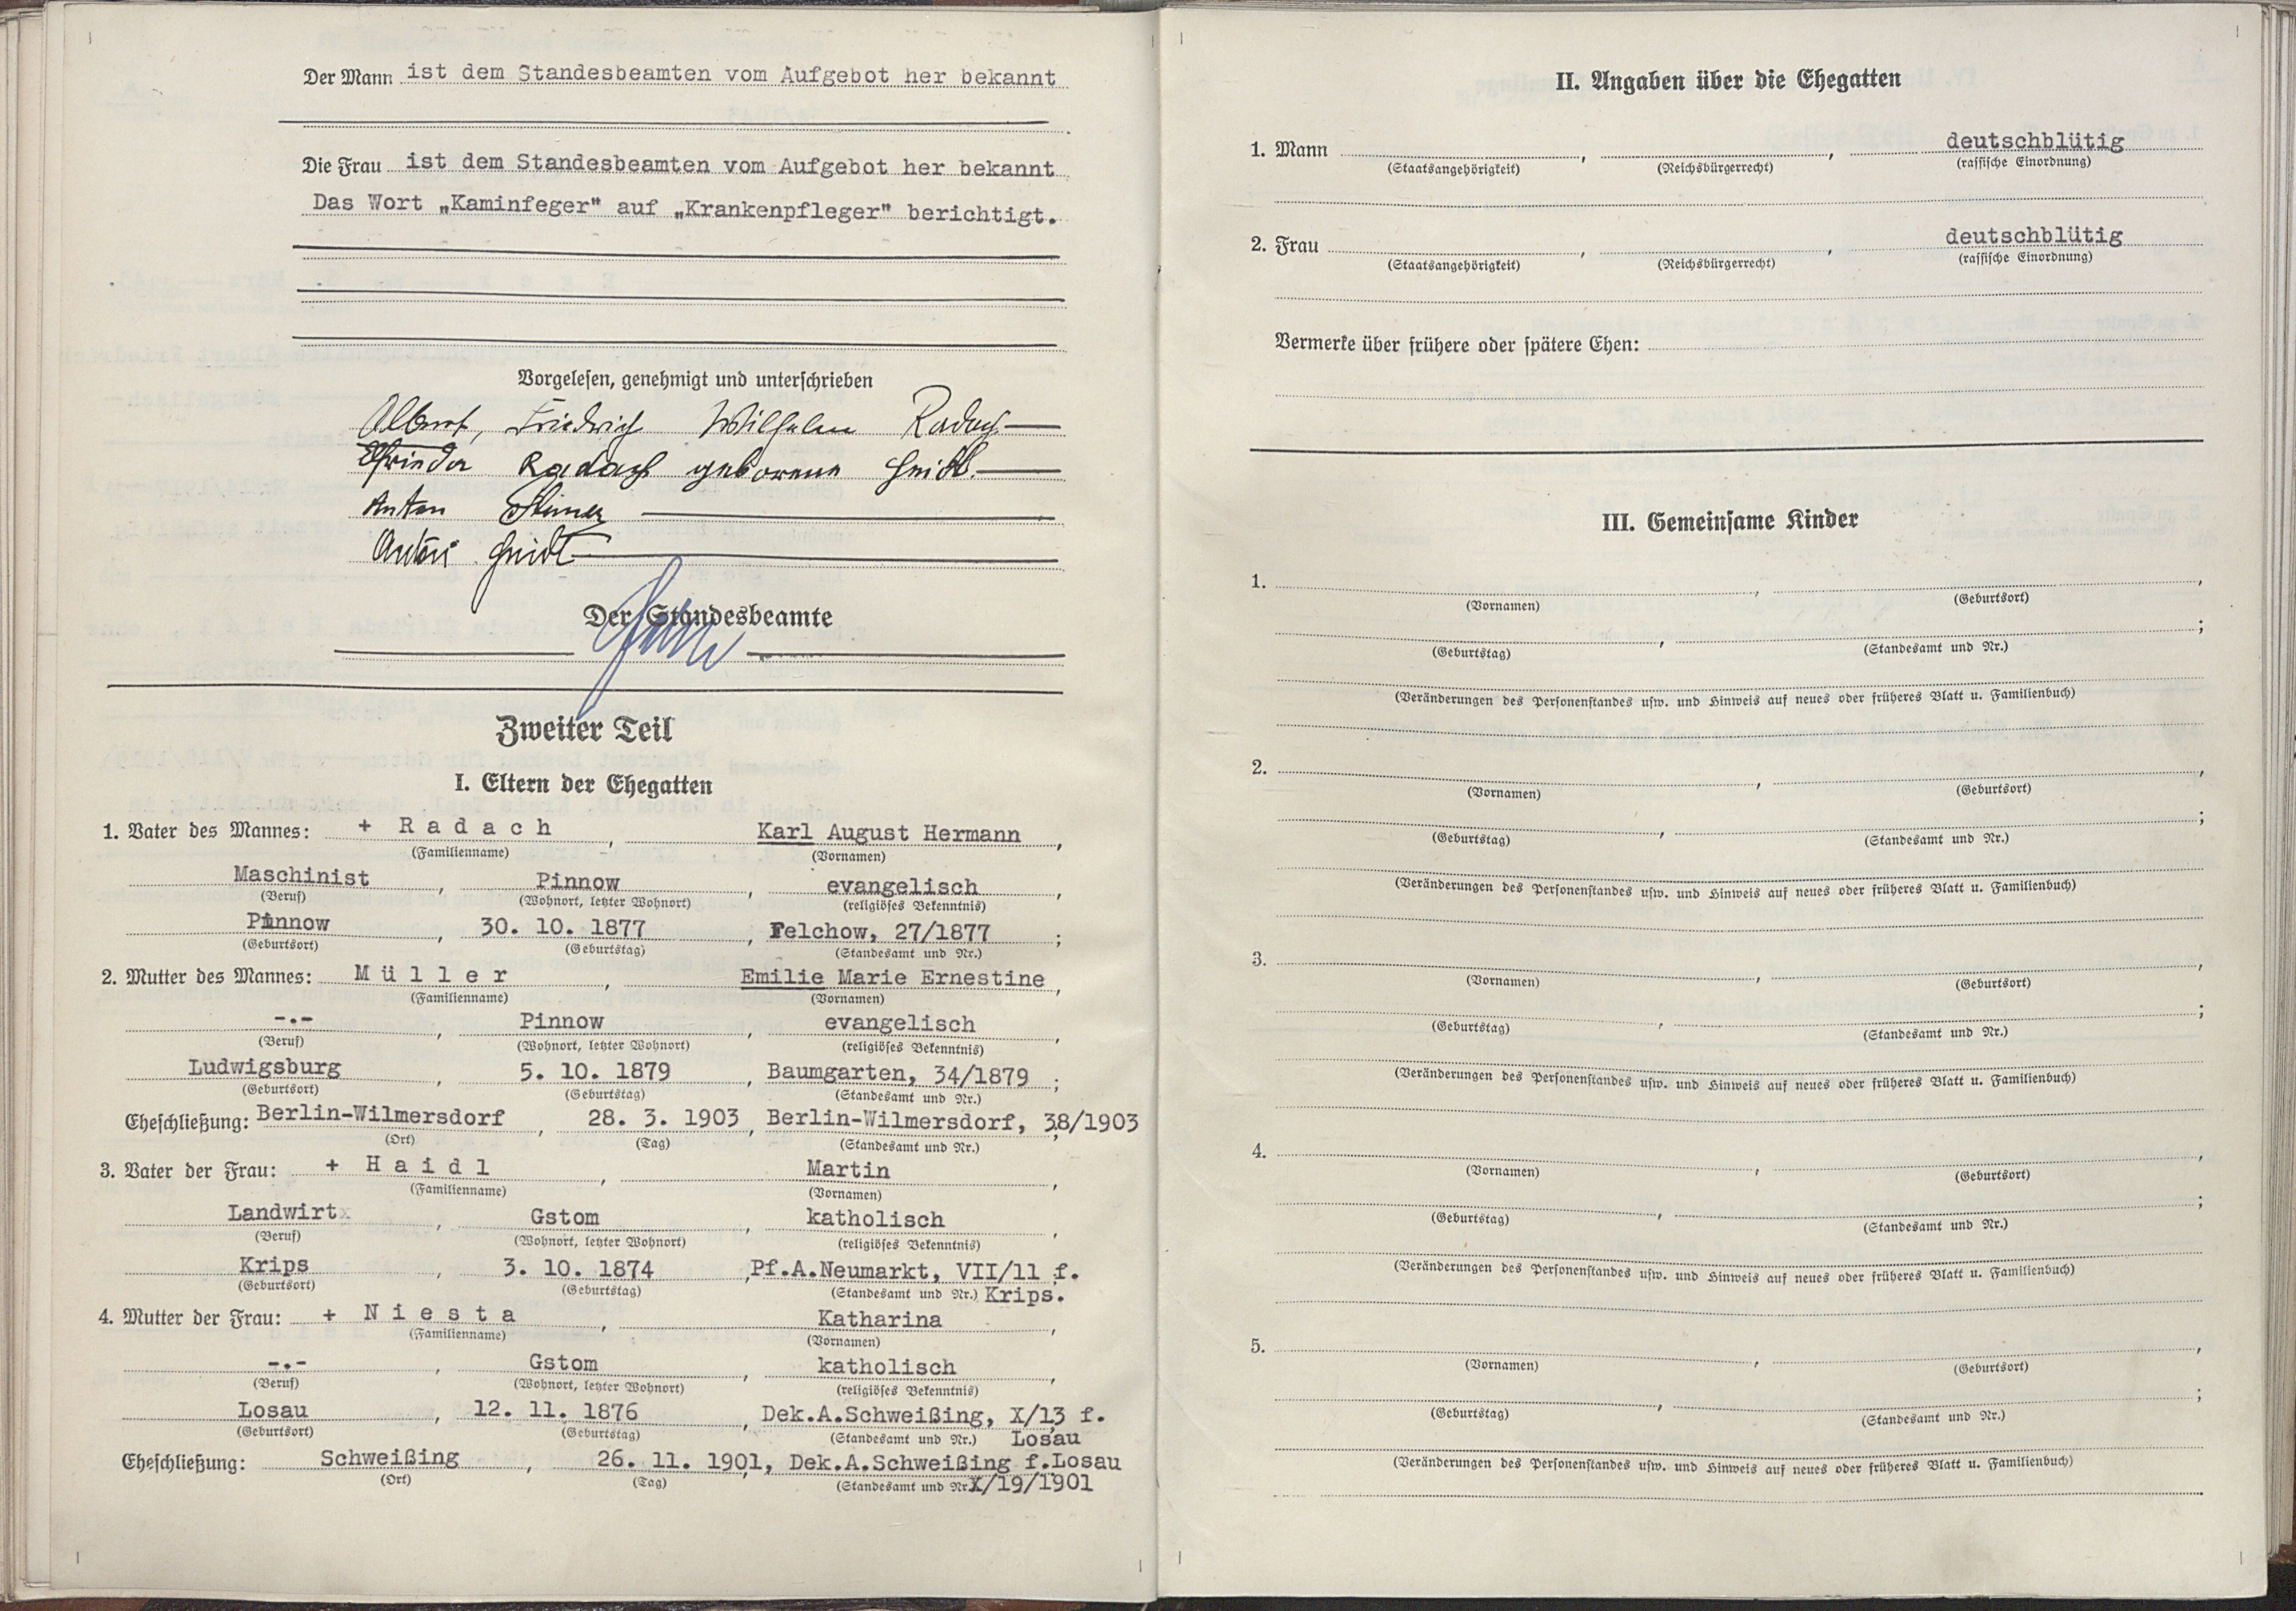 Der Mann ist dem Standesbeamten vom Aufgebot her bekannt
Die Frau ist dem Standesbeamten vom Aufgebot her bekannt
Das Wort „Kaminfeger" auf „Krankenpfleger" berichtigt.
Vorgelesen, genehmigt und unterschrieben
Albert, Friedrich Wilhelm Radach
Elfrieda Radach geborene Haidl.
Anton
Anton Haidl
Der Standesbeamte
Zweiter Teil
I. Eltern der Ehegatten
1. Vater des Mannes: + Radach, Karl August Hermann,
(Familienname) (Vornamen)
Maschinist, Pinnow, evangelisch,
(Beruf) (Wohnort, letzter Wohnort) (religiöses Bekenntnis)
Pinnow, 30. 10. 1877, Felchow, 27/1877;
(Geburtsort) (Geburtstag) (Standesamt und Nr.)
2. Mutter des Mannes: Müller, Emilie Marie Ernestine,
(Familienname) (Vornamen)
-.-, Pinnow, evangelisch,
(Beruf) (Wohnort, letzter Wohnort) (religiöses Bekenntnis)
Ludwigsburg, 5. 10. 1879, Baumgarten, 34/1879;
(Geburtsort) (Geburtstag) (Standesamt und Nr.)
Eheschließung: Berlin-Wilmersdorf, 28. 3. 1903, Berlin-Wilmersdorf, 38/1903
(Ort) (Tag) (Standesamt und Nr.)
3. Vater der Frau: + Haidl, Martin,
(Familienname) (Vornamen)
Landwirt, Gstom, katholisch,
(Beruf) (Wohnort, letzter Wohnort) (religiöses Bekenntnis)
Krips, 3. 10. 1874, Pf.A.Neumarkt, VII/11 f.
(Geburtsort) (Geburtstag) (Standesamt und Nr.) Krips.
4. Mutter der Frau: + Niesta, Katharina,
(Familienname) (Vornamen)
-.-, Gstom, katholisch,
(Beruf) (Wohnort, letzter Wohnort) (religiöses Bekenntnis)
Losau, 12. 11. 1876, Dek.A.Schweißing, X/13 f.
(Geburtsort) (Geburtstag) (Standesamt und Nr.) Losau
Eheschließung: Schweißing, 26. 11. 1901, Dek.A.Schweißing f.Losau
(Ort) (Tag) (Standesamt und Nr. X/19/1901
II. Angaben über die Ehegatten
1. Mann , , deutschblütig
(Staatsangehörigkeit) (Reichsbürgerrecht) (rassische Einordnung)
2. Frau , , deutschblütig
(Staatsangehörigkeit) (Reichsbürgerrecht) (rassische Einordnung)
Vermerke über frühere oder spätere Ehen:
III. Gemeinsame Kinder
1. , ,
(Vornamen) (Geburtsort)
, ;
(Geburtstag) (Standesamt und Nr.)
(Veränderungen des Personenstandes usw. und Hinweis auf neues oder früheres Blatt u. Familienbuch)
2. , ,
(Vornamen) (Geburtsort)
, ;
(Geburtstag) (Standesamt und Nr.)
(Veränderungen des Personenstandes usw. und Hinweis auf neues oder früheres Blatt u. Familienbuch)
3. , ,
(Vornamen) (Geburtsort)
, ;
(Geburtstag) (Standesamt und Nr.)
(Veränderungen des Personenstandes usw. und Hinweis auf neues oder früheres Blatt u. Familienbuch)
4. , ,
(Vornamen) (Geburtsort)
, ;
(Geburtstag) (Standesamt und Nr.)
(Veränderungen des Personenstandes usw. und Hinweis auf neues oder früheres Blatt u. Familienbuch)
5. , ,
(Vornamen) (Geburtsort)
, ;
(Geburtstag) (Standesamt und Nr.)
(Veränderungen des Personenstandes usw. und Hinweis auf neues oder früheres Blatt u. Familienbuch)